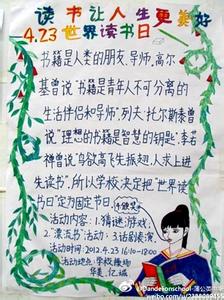 读书让人生更美好
4.23世界读书日
书籍是人类的朋友、导师,高尔
基曾说书籍是青年人不可分离的
生活伴侣和导师",列夫·托尔斯泰曾
说"理想的书籍是智慧的钥匙",李若
禅曾说"鸟欲高飞先振翅,人求上进
先读书",所以学校决定把"世界读
书日"定为固定节日。
活动内容:1.猜谜游戏;
2."漂流书"活动;3.话剧表演
活动时间:2012.4.23 16:10-18:00
活动地点:学校操场
@Dandelionschool-蒲公英